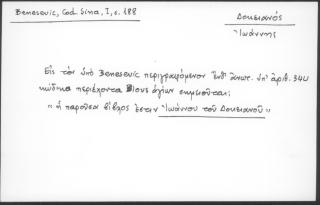 Benesevic, Cod. Sina, I, σ. 188
Δουκιανός
Ἰωάννης
Εἰς τὸν ὑπὸ Benesevic περιγραφόμενον ἔνθ' ἀνωτ. ὑπ' ἀριθ. 340
κώδικα περιέχοντα Βίους ἁγίων σημειοῦται:
"ἡ παροῦσα βίβλος ἐστιν Ἰωάννου τοῦ Δουκιανοῦ"